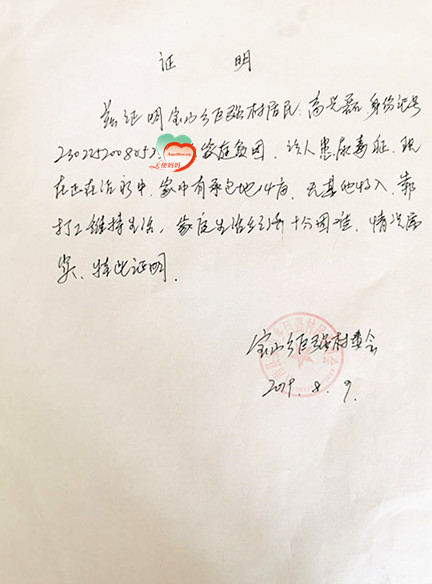 证 明
兹证明宝山乡巨强村居民:高兴磊,身份证号
2302252008052 家庭贫困。该人患尿毒症,现
在正在治疗中。家中有承包地14亩,无其他收入,靠
打工维持生活,家庭生活经济十分困难。情况属
实,特此证明。
宝山乡巨强村委会
2019.8.9.